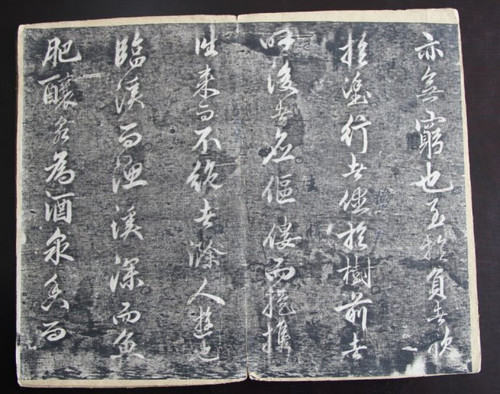 亦無窮也至於負者歌
於塗行者休於樹前者
呼後者應傴僂而提攜
往来而不絕者滁人遊也
臨溪而漁溪深而魚
肥釀泉為酒泉香而